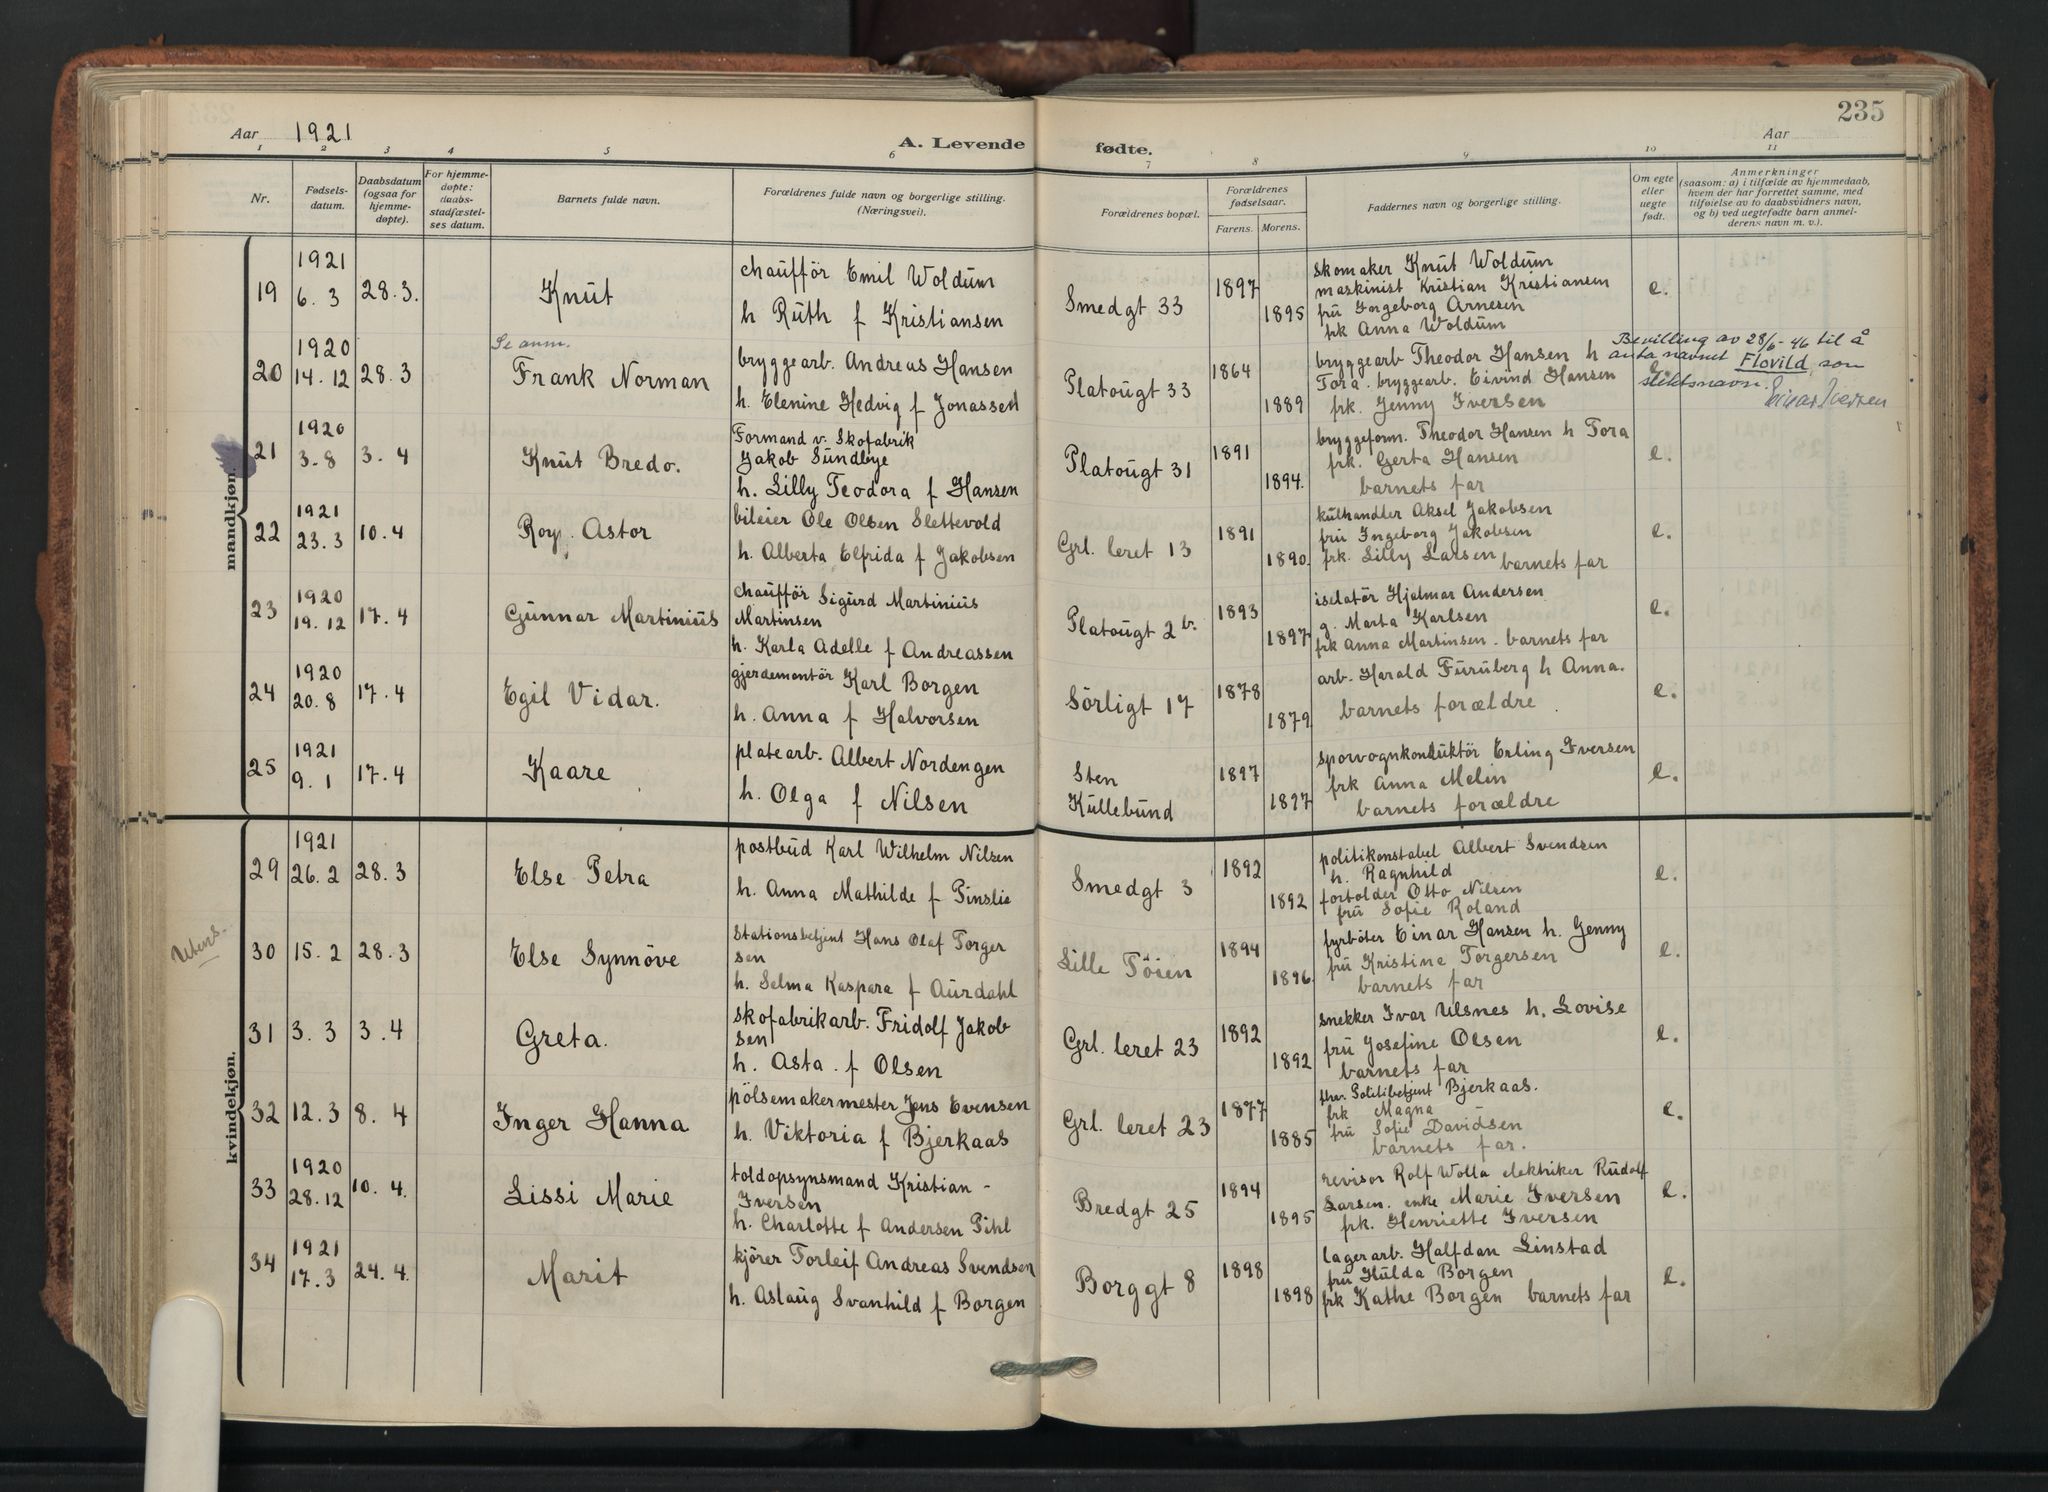 235
Aar 1921
A. Levende fødte.
Aar
1 2 3 4 5 6 7 8 9 10 11
Nr.
Fødsels-
datum.
Daabsdatum
(ogsaa for
hjemme-
døpte).
For hjemme-
døpte:
daabs-
stadfæstel-
ses datum.
Barnets fulde navn.
Forældrenes fulde navn og borgerlige stilling.
(Næringsvei).
Forældrenes bopæl.
Forældrenes
fødselsaar.
Farens. Morens.
Faddernes navn og borgerlige stilling.
Om egte
eller
uegte
født.
Anmerkninger
(saasom: a) i tilfælde av hjemmedaab,
hvem der har forrettet samme, med
tilføielse av to daabsvidners navn,
og b) ved uegtefødte barn anmel-
derens navn m. v.).
mandkjøn.
19
1921
6. 3
28.3.
Knut
chaufför Emil Woldum
h Ruth f Kristiansen
Smedgt 33
1897
1895
skomaker Knut Woldum
maskinist Kristian Kristiansen
fru Ingeborg Arnesen
frk Anna Woldum
e.
20
1920
14.12
28.3
Se anm.
Frank Norman
bryggearb. Andreas Hansen
h. Elenine Hedvig f Jonassen
Platougt 33
1864
1889
bryggearb Theodor Hansen h
Tora. bryggearb. Eivind Hansen
frk. Jenny Iversen
e.
Bevilling av 28/6-46 til å
anta navnet Flovild som
slektsnavn.
Einar Iversen
21
1920
3.8
3. 4
Knut Bredo.
Formand v. Skofabrik
Jakob Sundbye
h. Lilly Teodora f Hansen
Platougt 31
1891
1894.
bryggeform. Theodor Hansen h Tora
frk. Gerta Hansen
barnets far
e.
22
1921
23.3
10.4
Roy. Astor
bileier Ole Olsen Slettevold
h. Alberta Elfrida f Jakobsen
Grl. leret 13
1891
1890.
kulhandler Aksel Jakobsen
fru Ingeborg Jakobsen
frk. Lilly Larsen barnets far
e.
23
1920
19.12
17.4
Gunnar Martinius
chaufför Sigurd Martinius
Martinsen
h. Karla Adelle f Andreassen
Platougt 2 b.
1893
1897
iselatör Hjalmar Andersen
g. Marta Karlsen
frk Anna Martinsen. barnets far
e.
24
1920
20.8
17.4
Egil Vidar.
gjerdemontör Karl Borgen
h. Anna f Halvorsen
Sörligt 17
1878
1879.
arb. Harald Furuberg h Anna.
barnets forældre.
e.
25
1921
9. 1
17.4
Kaare
platearb. Albert Nordengen
h. Olga f Nilsen
Sten
Kullebund
1897
1897
sporvognkonduktör Erling Iversen
frk Anna Melin
barnets forældre
e.
kvindekjøn.
29
1921
26.2
28.3
Else Petra
postbud Karl Wilhelm Nilsen
h. Anna Mathilde f Pinslie
Smedgt 3
1892
1892
politikonstabel Albert Svendsen
h. Ragnhild
forvolder Otto Nilsen
fru Sofie Roland
e.
Utens.
30
15.2
28.3
Else Synnöve
Stationsbetjent Hans Olaf Torger
sen
h. Selma Kaspara f Aurdahl
Lille Töien
1894
1896.
fyrböter Einar Hansen h. Jenny
fru Kristine Torgersen
barnets far
e.
31
3. 3
3. 4
Greta.
skofabrikarb. Fridolf Jakob
sen
h. Asta. f Olsen
Grl. leret 23
1892
1892
snekker Ivar Ulsnes h. Lovise
fru Josefine Olsen
barnets far
e.
32
12.3
8. 4
Inger Hanna
pölsemakermester Jens Evensen
h. Viktoria f Bjerkaas
Grl. leret 23
1877
1885
Politibetjent Bjerkaas.
frk Magna
fru Sofie Davidsen
barnets far.
e.
33
1920
28.12
10. 4.
Lissi Marie
toldopsynsmand Kristian -
Iversen
h. Charlotte f Andersen Pihl
Bredgt 25
1894
1895
revisor Rolf Wolla elektriker Rudolf
Larsen. enke Marie Iversen
frk. Henriette Iversen
e.
34
1921
17.3
24.4.
Marit
kjörer Torleif Andreas Svendsen
h. Aslaug Svanhild f Borgen
Borggt 8
1898
1898
lagerarb. Halfdan Linstad
fru Hulda Borgen
frk Kathe Borgen barnets far
e.